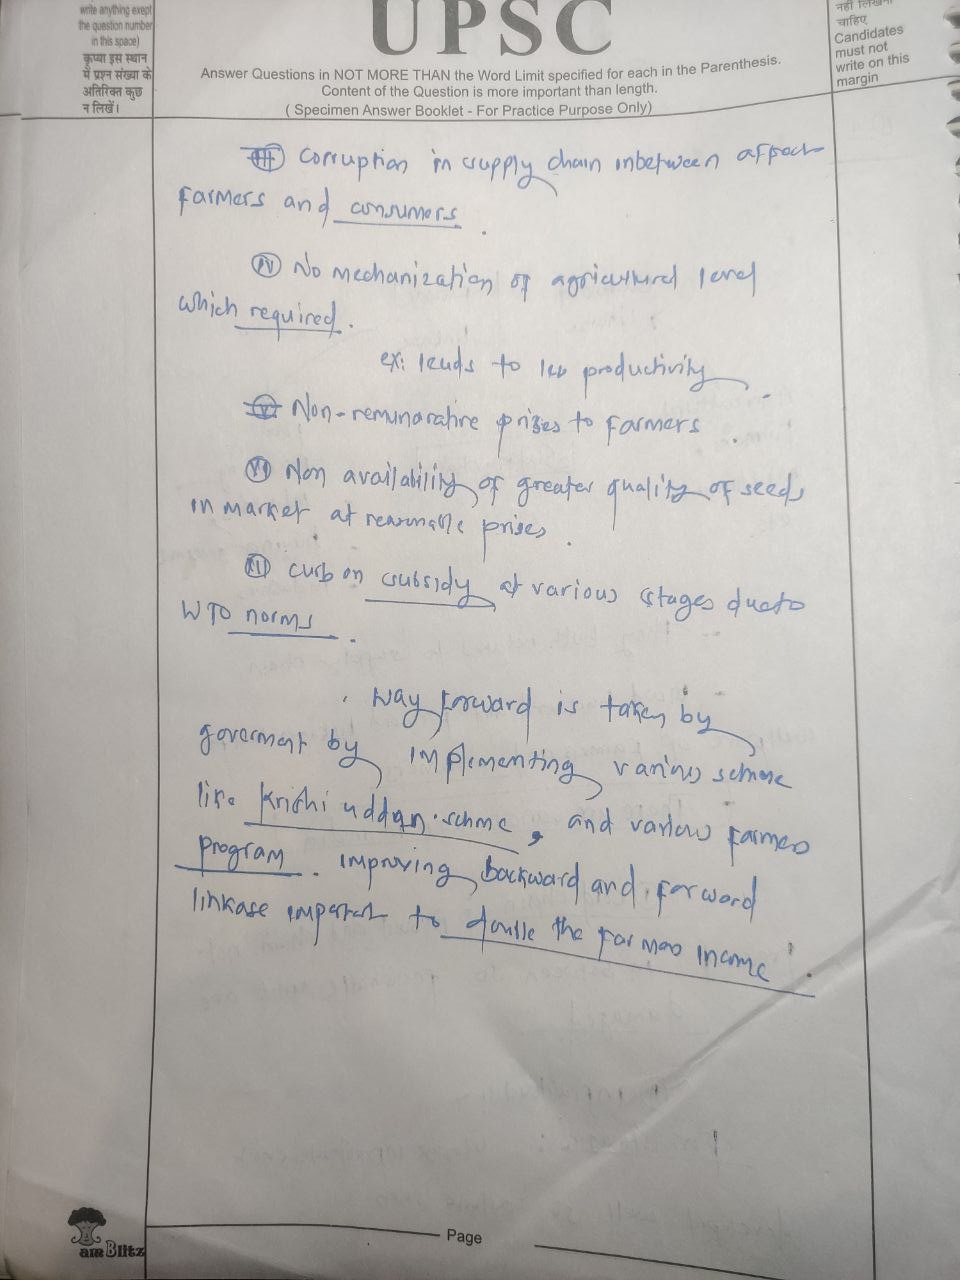 write anything exept
the question number
in this space)
कृप्या इस स्थान
में प्रश्न संख्या के
अतिरिक्त कुछ
न लिखें।
UPSC
Answer Questions in NOT MORE THAN the Word Limit specified for each in the Parenthesis.
Content of the Question is more important than length.
( Specimen Answer Booklet - For Practice Purpose Only)
नहीं लिखना
चाहिए
Candidates
must not
write on this
margin
(III) corruption in supply chain inbetween affect
farmers and consumers.
(IV) No mechanization of agricultural level
which required.
ex: leads to low productivity.
(V) Non-remunarative prizes to farmers.
(VI) Non availability of greater quality of seeds
in market at reasonable prises.
(VII) curb on subsidy at various stages due to
WTO norms.
Way forward is taken by
goverment by implementing various schme
like Krishi uddan schme, and various farmers
program. improving backward and forward
linkase importat to double the farmers income.
Page
am Blitz